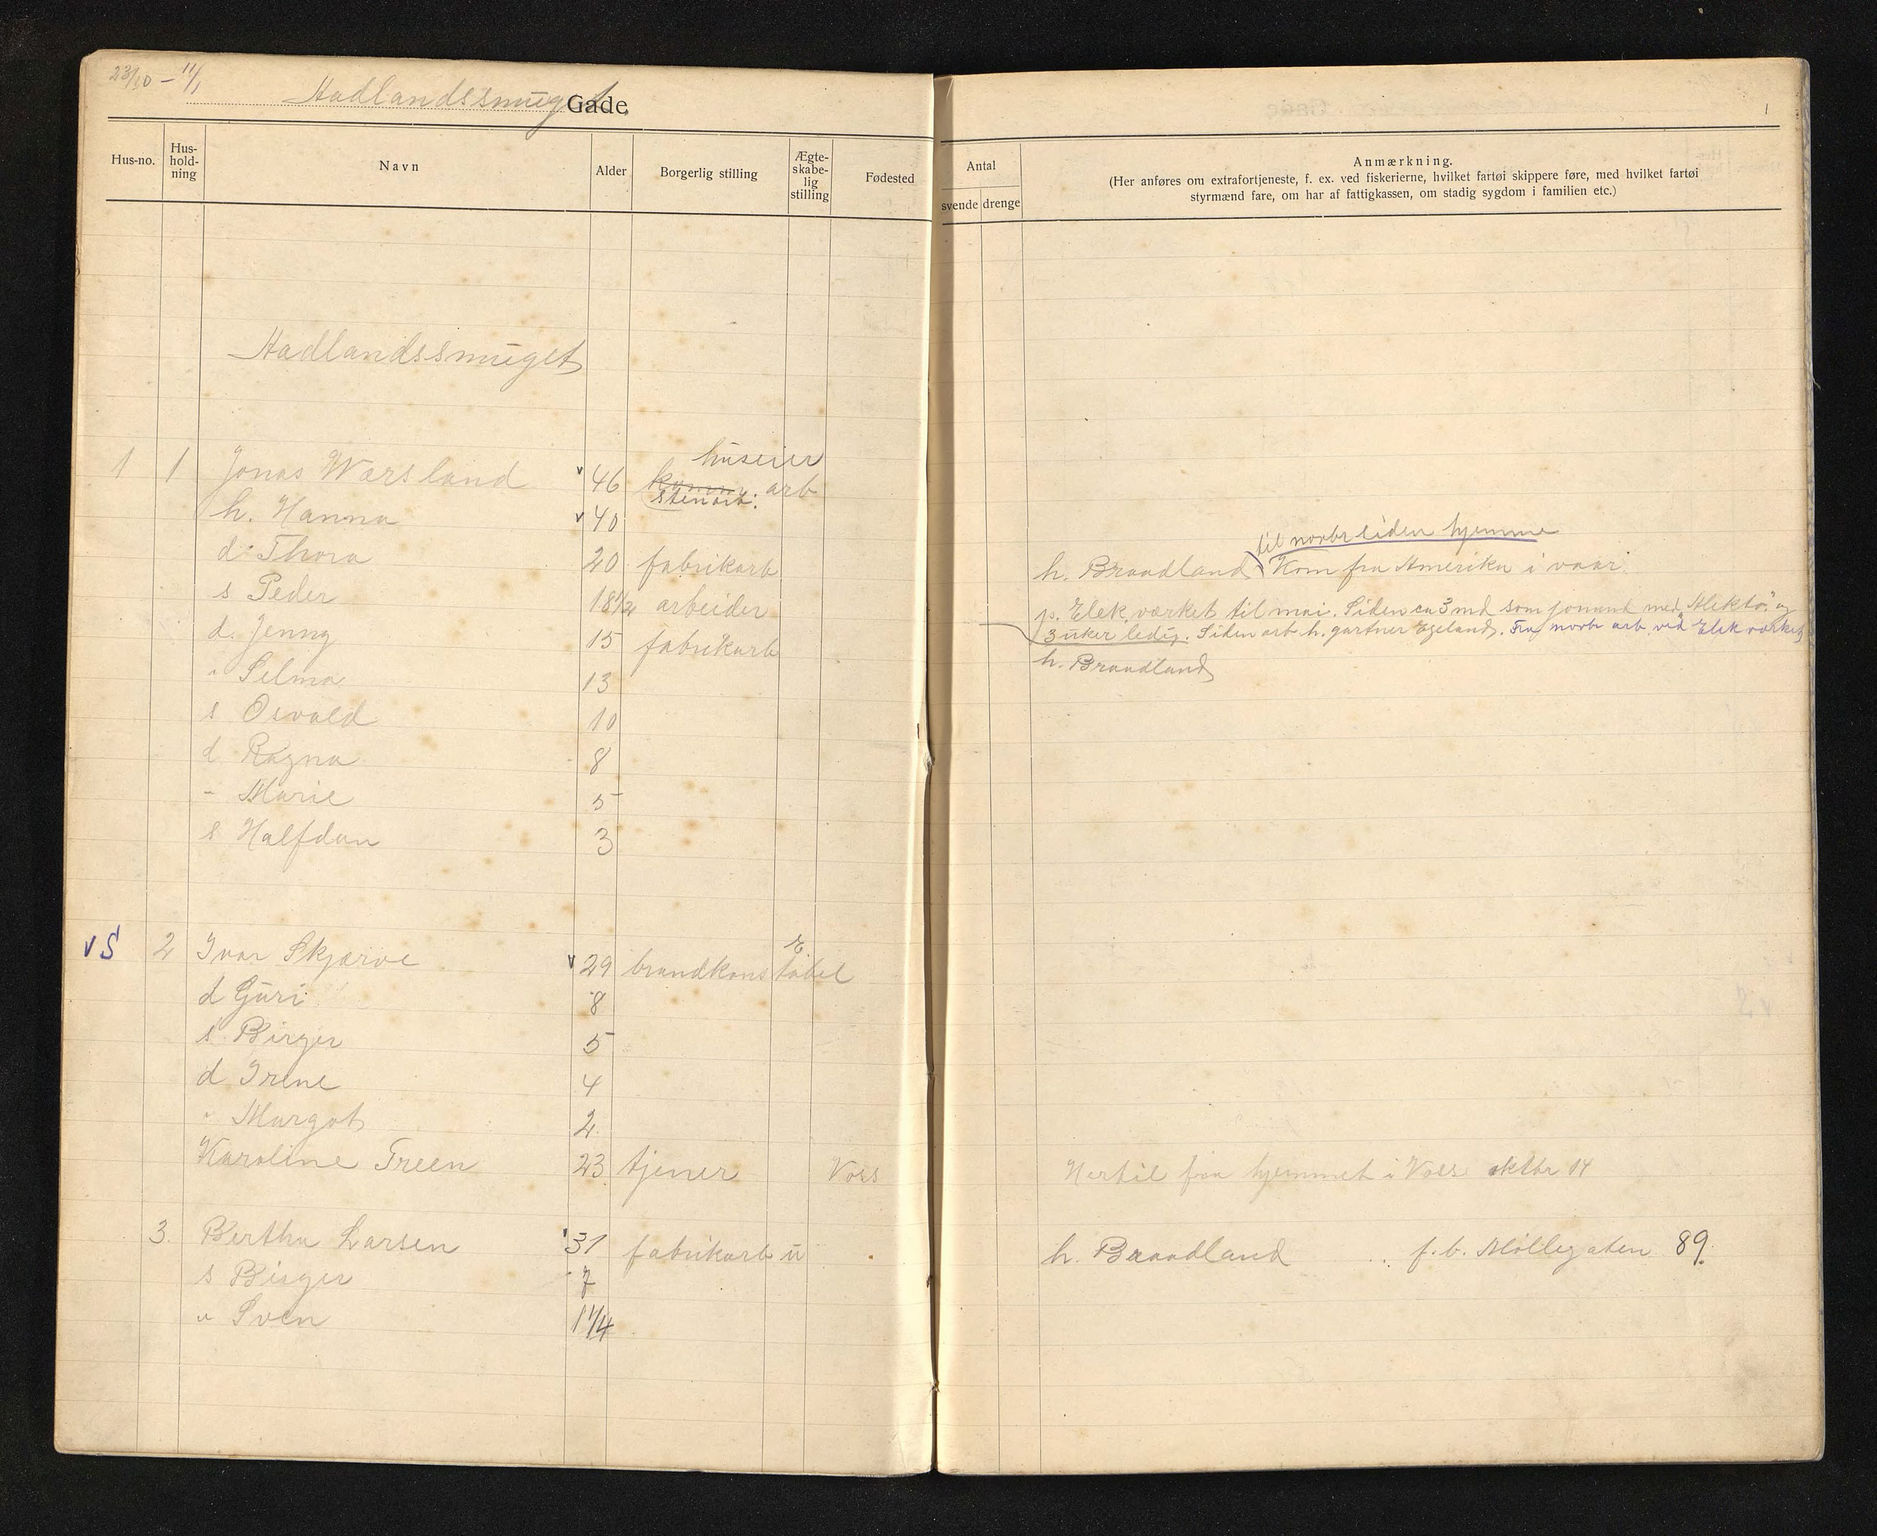 23/10 – 11/1
Hadlandssmug Gade.
1
Hus-no.
Hus-
hold-
ning
Navn
Alder
Borgerlig stilling
Ægte-
skabe-
lig
stilling
Fødested
Antal
svende drenge
Anmærkning.
(Her anføres om extrafortjeneste, f. ex. ved fiskerierne, hvilket fartøi skippere føre, med hvilket fartøi
styrmænd fare, om har af fattigkassen, om stadig sygdom i familien etc.)
Hadlandssmuget
huseier
1 1 Jonas Warsland v 46 komm. arb
stenarb.
h. Hanna v 40
til novbr liden hjemme
d. Thora 20 fabrikarb h. Braadland Kom fra Amerika i vaar.
s Peder 18 1/2 arbeider p. Elek. værket til mai. Siden ca 3 md som jomand med "Alekto" og
3 uker ledig. Siden arb h. gartner Egeland. Fra novbr arb. ved Elek værket
d. Jenny 15 fabrikarb h. Braadland
" Selma 13
s Osvald 10
d. Ragna 8
- Marie 5
s Halfdan 3
v S 2 Ivar Skjærve v 29 brandkonstabel E
d Guri 8
s. Birger 5
d Irene 4
" Margot 2
Karoline Treen 23 tjener Voss Hertil fra hjemmet i Voss oktbr 14
3. Bertha Larsen 31 fabrikarb u h. Braadland f. b. Møllegaten 89.
s Birger 7
" Sven 1 1/4